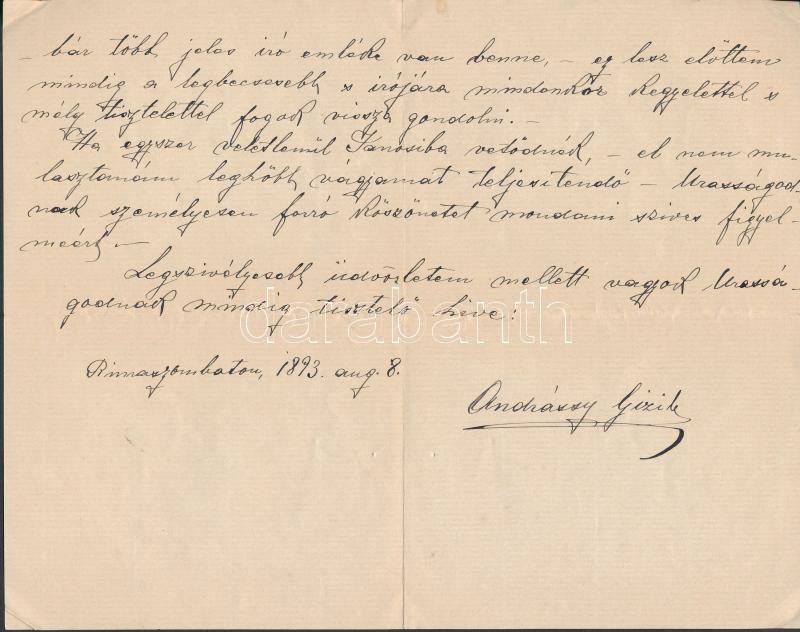 – bár több jeles iró emléke van benne, – ez lesz előttem
mindig a legbecsesebb s irójára mindenkor kegyelettel s
mély tisztelettel fogok vissza gondolni. –
Ha egyszer véletlenül Jánosiba vetődnék, – el nem mu-
lasztanám leghőbb vágyamat teljesitendő – Urasságod
nak személyesen forró köszönetet mondani szives figyel-
méért –
Legszivélyesebb üdvözletem mellett vagyok Urassá-
godnak mindig tisztelő hive!
darabanth
Rimaszombaton, 1893. aug. 8.
Andrássy Gizik